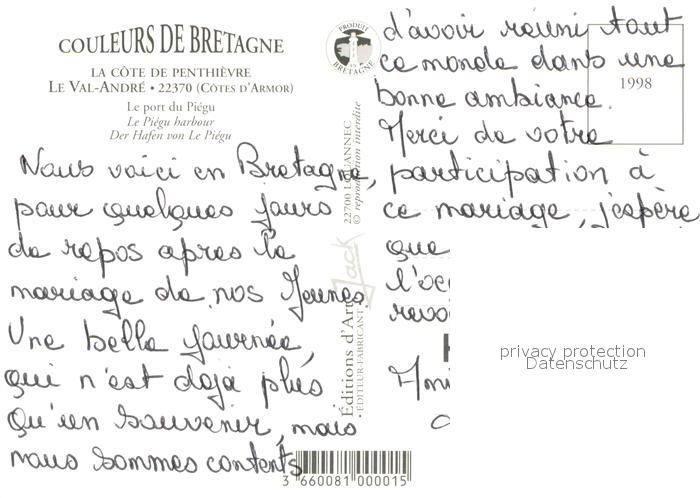 COULEURS DE BRETAGNE
LA CÔTE DE PENTHIÈVRE
LE VAL-ANDRÉ • 22370 (CÔTES D'ARMOR)
Le port du Piégu
Le Piégu harbour
Der Hafen von Le Piégu
PRODUIT EN BRETAGNE
1998
Nous voici en Bretagne,
pour quelques jours
de repos apres le
mariage de nos Jeunes.
Une belle journée,
qui n'est deja plus
qu'un souvenir, mais
nous sommes contents
d'avoir reuni tout
ce monde dans une
bonne ambiance.
Merci de votre
participation à
ce mariage, j'espère
que
l'oc
revoi
Moni
22700 LOUANNEC
© reproduction interdite
Jack
Éditions d'Art
• ÉDITEUR-FABRICANT
privacy protection
Datenschutz
3 660081 000015